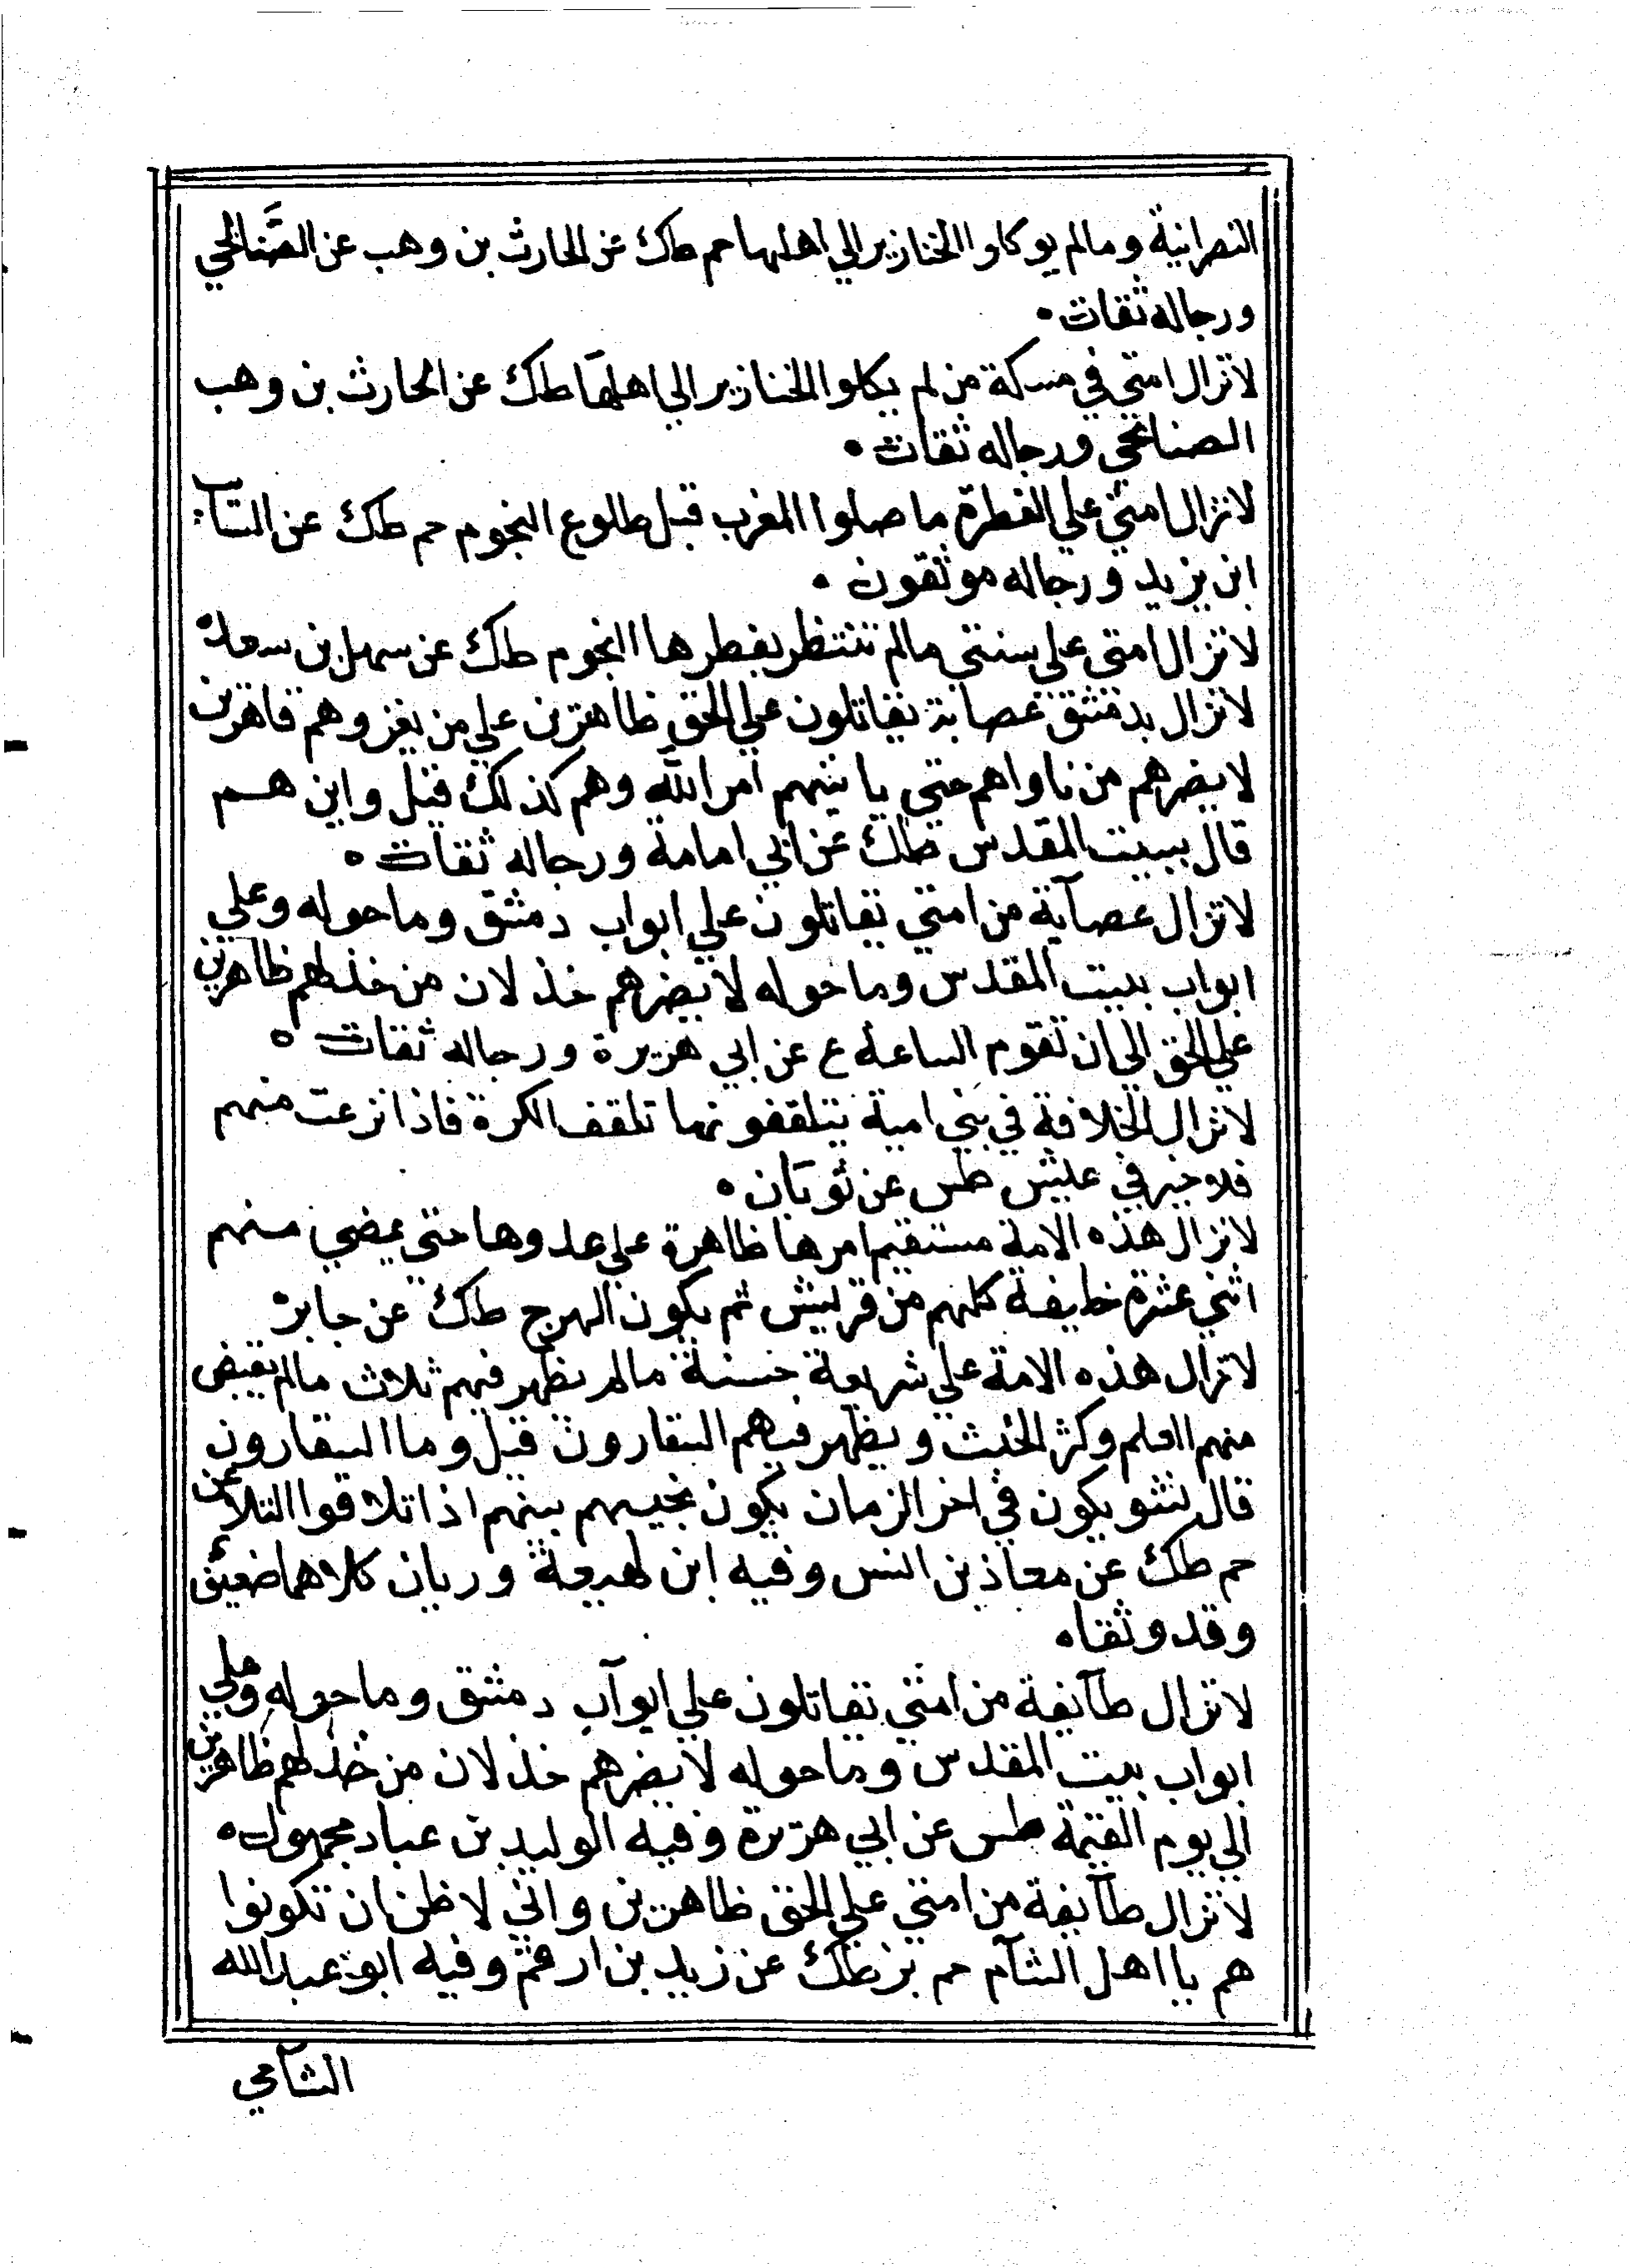 النصرانية ومالم يوكلوا الخنازير الي اهلها حم طك عن الحارث بن وهب عن الصَّنابحي
ورجاله ثقات •
لا تزال امتي في مسكة من لم يكلوا الخنازير الي اهلها طك عن الحارث بن وهب
الصنابحي ورجاله ثقات •
لا تزال امتي علي الفطرة ما صلوا المغرب قبل طلوع النجوم حم طك عن السآئب
ابن يزيد ورجاله موثقون •
لا تزال امتي علي سنتي مالم تنتظر بفطرها النجوم طك عن سهل بن سعد ه
لا تزال بدمشق عصابة يقاتلون علي الحق ظاهرين علي من يغزوهم قاهرين
لا يضرهم من ناواهم حتي ياتيهم امر الله وهم كذلك قيل واين هم
قال ببيت المقدس طك عن ابي امامة ورجاله ثقات ه
لا تزال عصآبة من امتي يقاتلون علي ابواب دمشق وما حوله وعلي
ابواب بيت المقدس وما حوله لا يضرهم خذلان من خذلهم ظاهرين
علي الحق الي ان تقوم الساعة ع عن ابي هريرة ورجاله ثقات ه
لا تزال الخلافة في بني امية يتلقفونها تلقف الكرة فاذا نزعت منهم
فلا خير في عيش طس عن ثوبان ه
لا تزال هذه الامة مستقيم امرها ظاهرة علي عدوها حتي يمضي منهم
اثني عشرة خليفة كلهم من قريش ثم يكون الهرج طك عن جابر ه
لا تزال هذه الامة علي شريعة حسنة مالم يظهر فيهم ثلاث مالم يقبض
منهم العلم وكثر الخبث ويظهر فيهم السقارون قيل وما السقارون
قال نشو يكون في اخر الزمان يكون تحيتهم بينهم اذا تلاقوا التلاعن
حم طك عن معاذ بن انس وفيه ابن لهيعة وربان كلاهما ضعيف
وقد وثقاه
لا تزال طآيفة من امتي يقاتلون علي ابوآب دمشق وما حوله وعلي
ابواب بيت المقدس وما حوله لا يضرهم خذلان من خذلهم ظاهرين
الي يوم القيمة طس عن ابي هريرة وفيه الوليد بن عباد مجهول ه
لا تزال طآيفة من امتي علي الحق ظاهرين واني لاظن ان تكونوا
هم يا اهل الشآم حم بز طك عن زيد بن ارقم وفيه ابو عبد الله
الشآمي